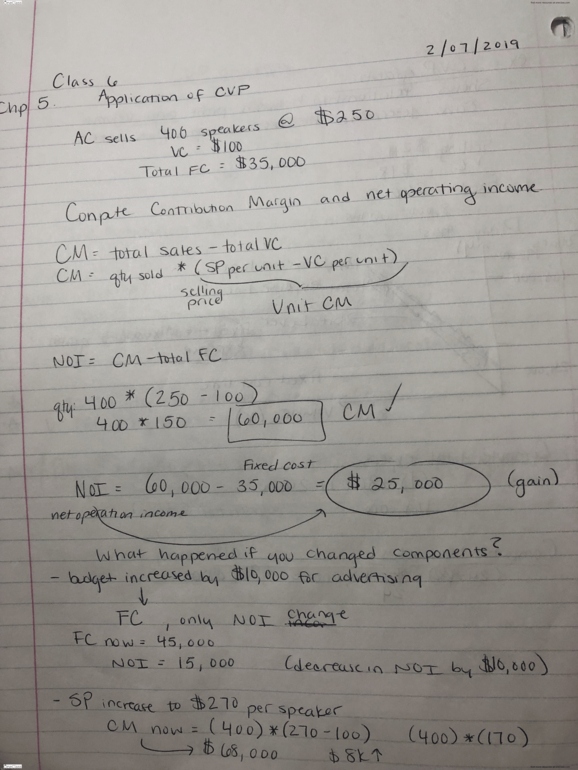 2/07/2019
Class 6
Chp 5. Application of CVP
AC sells 400 speakers @ $250
VC = $100
Total FC = $35,000
Conpute Contribution Margin and net operating income
CM = total sales - total VC
CM = qty sold * (SP per unit - VC per unit)
selling price
Unit CM
NOI = CM - total FC
qty 400 * (250 - 100)
400 * 150 = 60,000 CM ✓
Fixed cost
NOI = 60,000 - 35,000 = $ 25,000 (gain)
net operation income
What happened if you changed components?
- budget increased by $10,000 for advertising
↓
FC, only NOI change
FC now = 45,000
NOI = 15,000 (decrease in NOI by $10,000)
- SP increase to $270 per speaker
CM now = (400)*(270-100) (400)*(170)
→ $68,000 $8k↑